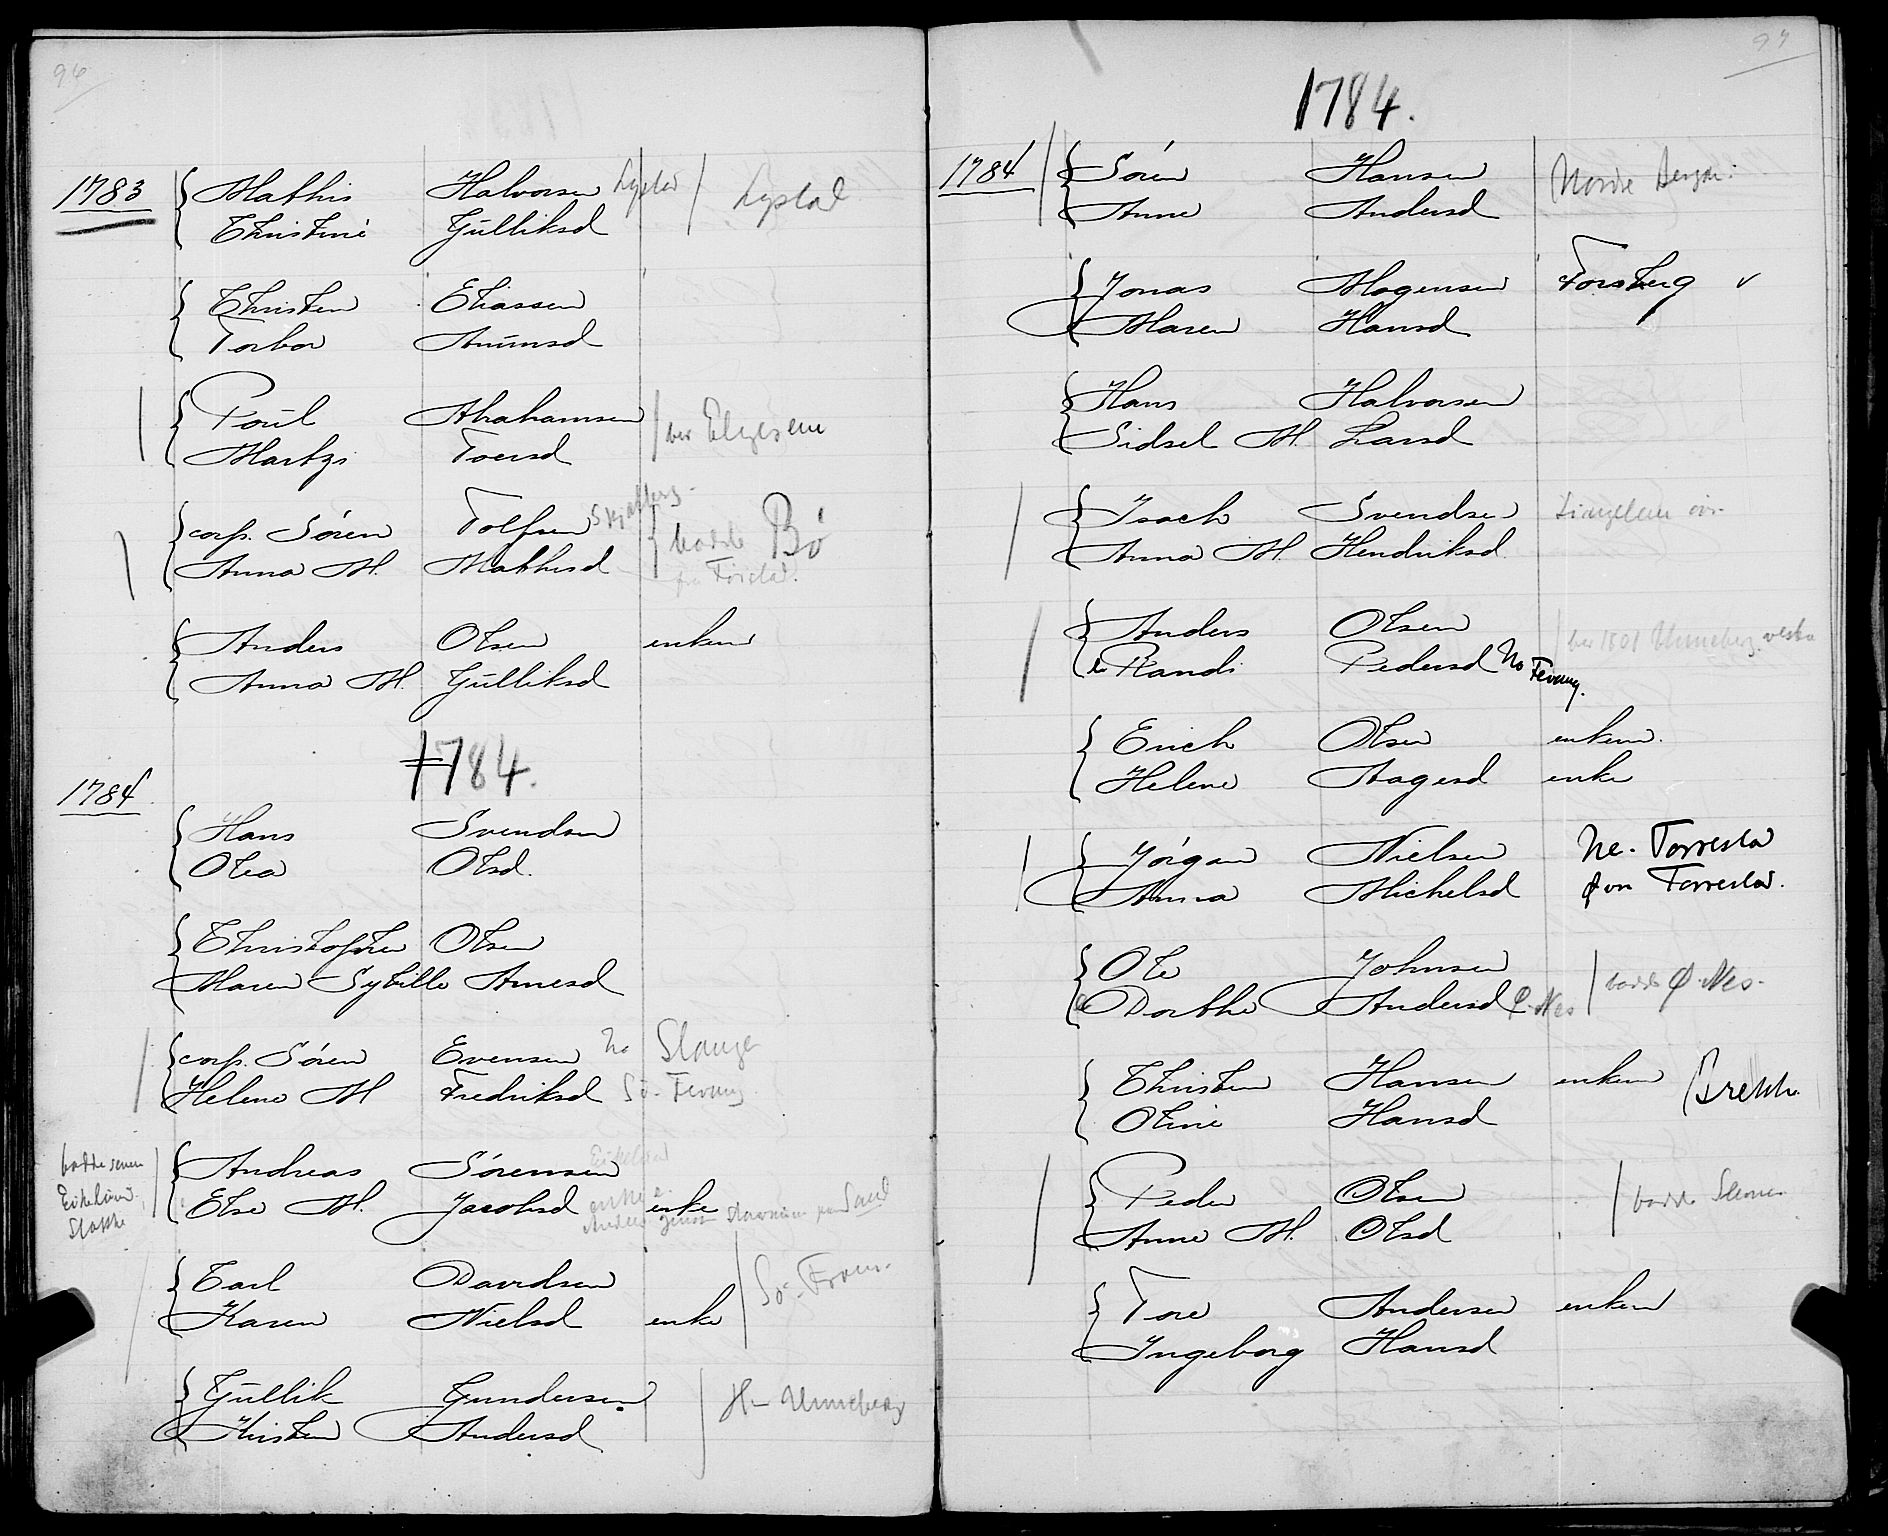 96
1783 Mathis Halvorsen Lystad Lystad
Christine Gulliksd
Christen Eliassen
Torbor Amunsd
Poul Abrahamsen bor Elgesem
Marthe Toersd
corp. Søren Tolfsen Skjalberg. bodde Bø
Anna M. Mathisd fra Førstad.
Anders Olsen enkem
Anna M. Gulliksd
1784.
1784
Hans Svendsen
Olea Olsd.
Christopher Olsen
Maren Sybille Arnesd
corp. Søren Evensen No Slange
Helene M Fredriksd Sö. Fevang.
bodde senere Andreas Sørensen Eikeland
Eikeland Else M. Jacobsd enke
Stokke Stavnum Sand
Carl Davidsen Sö. From.
Karen Nielsd enke
Gullik Gundersen H Unneberg
Kirsten Andersd
97
1784.
1784 Søren Hansen Nordre Bergan
Anne Andersd
Jonas Mogensen Forsberg v
Maren Hansd
Hans Halvorsen
Sidsel M. Larsd
Isach Svendsen Lingelem øvr.
Anna M. Hendriksd
Anders Olsen bor 1801 Unneberg vestre
Randi Pedersd No Fevang.
Erich Olsen enkem.
Helene Aagesd enke
Jørgen Nielsen Ne. Torrestad
Anna Michelsd fra Torrestad.
Ole Johnsen bodde Ø. Nes.
Dorthe Andersd Ø. Nes
Christen Hansen enkem Brekke
Oline Hansd
Peder Olsen bodde
Anne M. Olsd
Tore Andersen enkem
Ingeborg Hansd